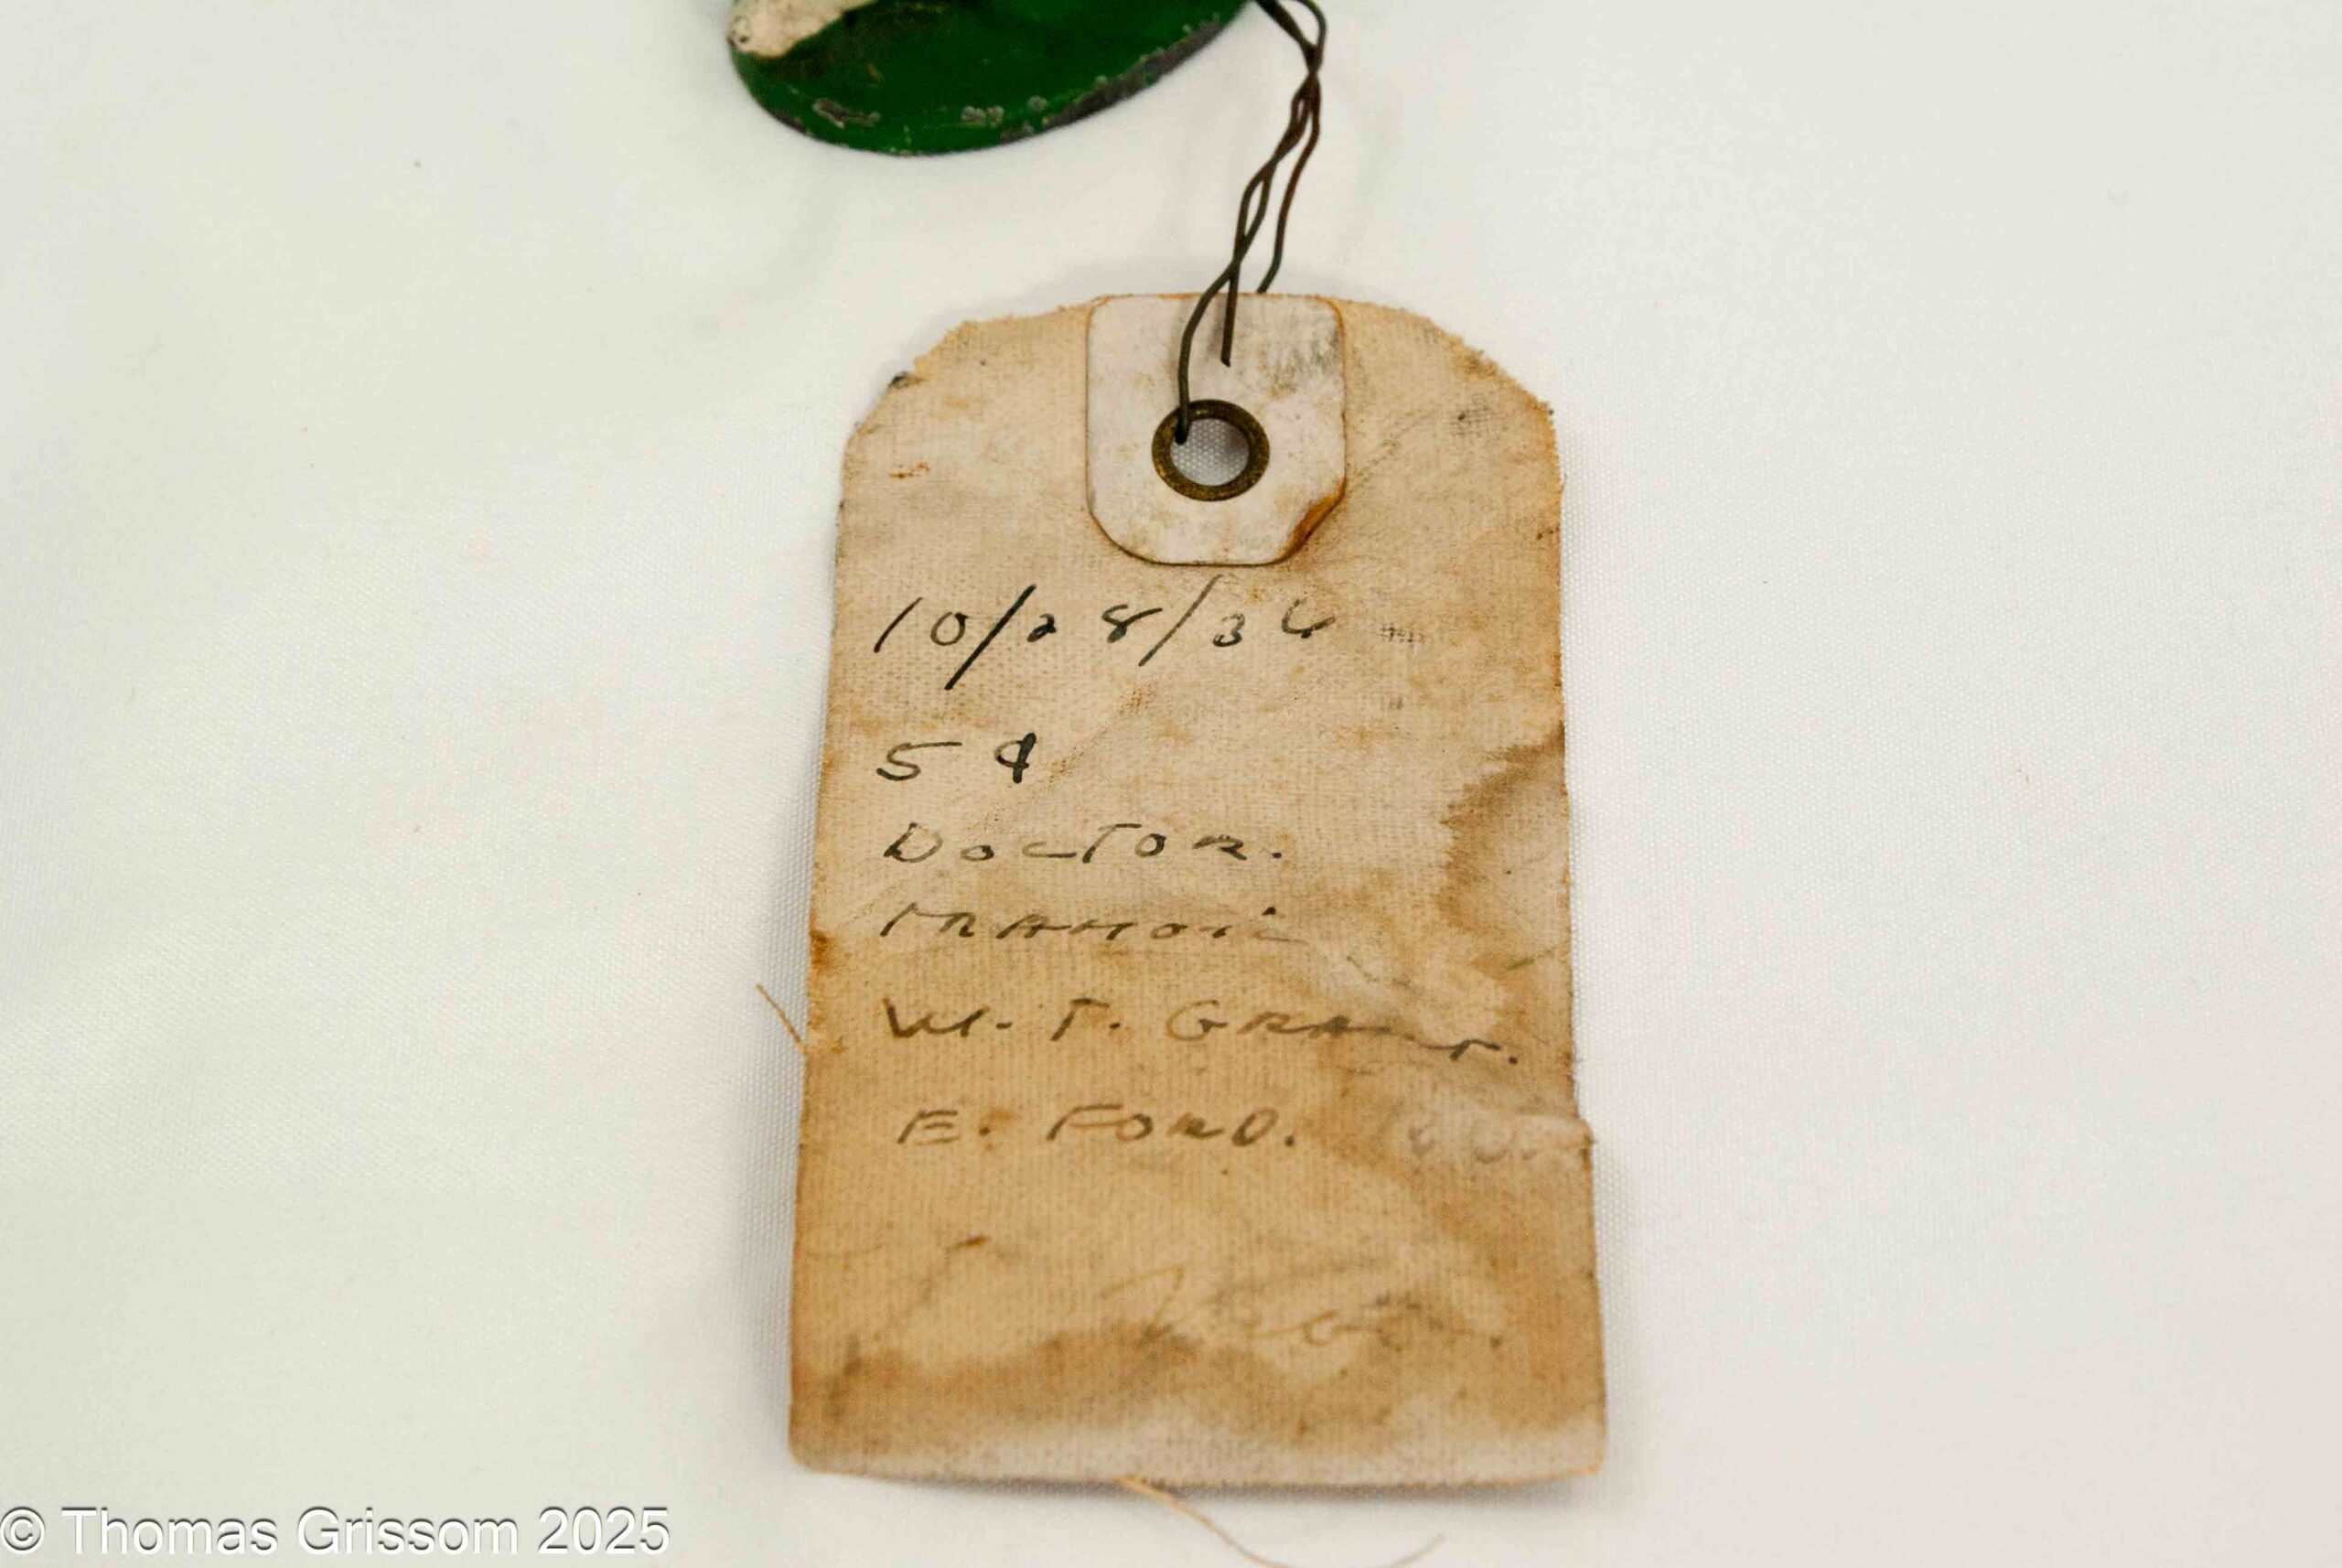 10/28/36
5¢
DOCTOR.
W. T. GRANT.
E. FORD.
© Thomas Grissom 2025